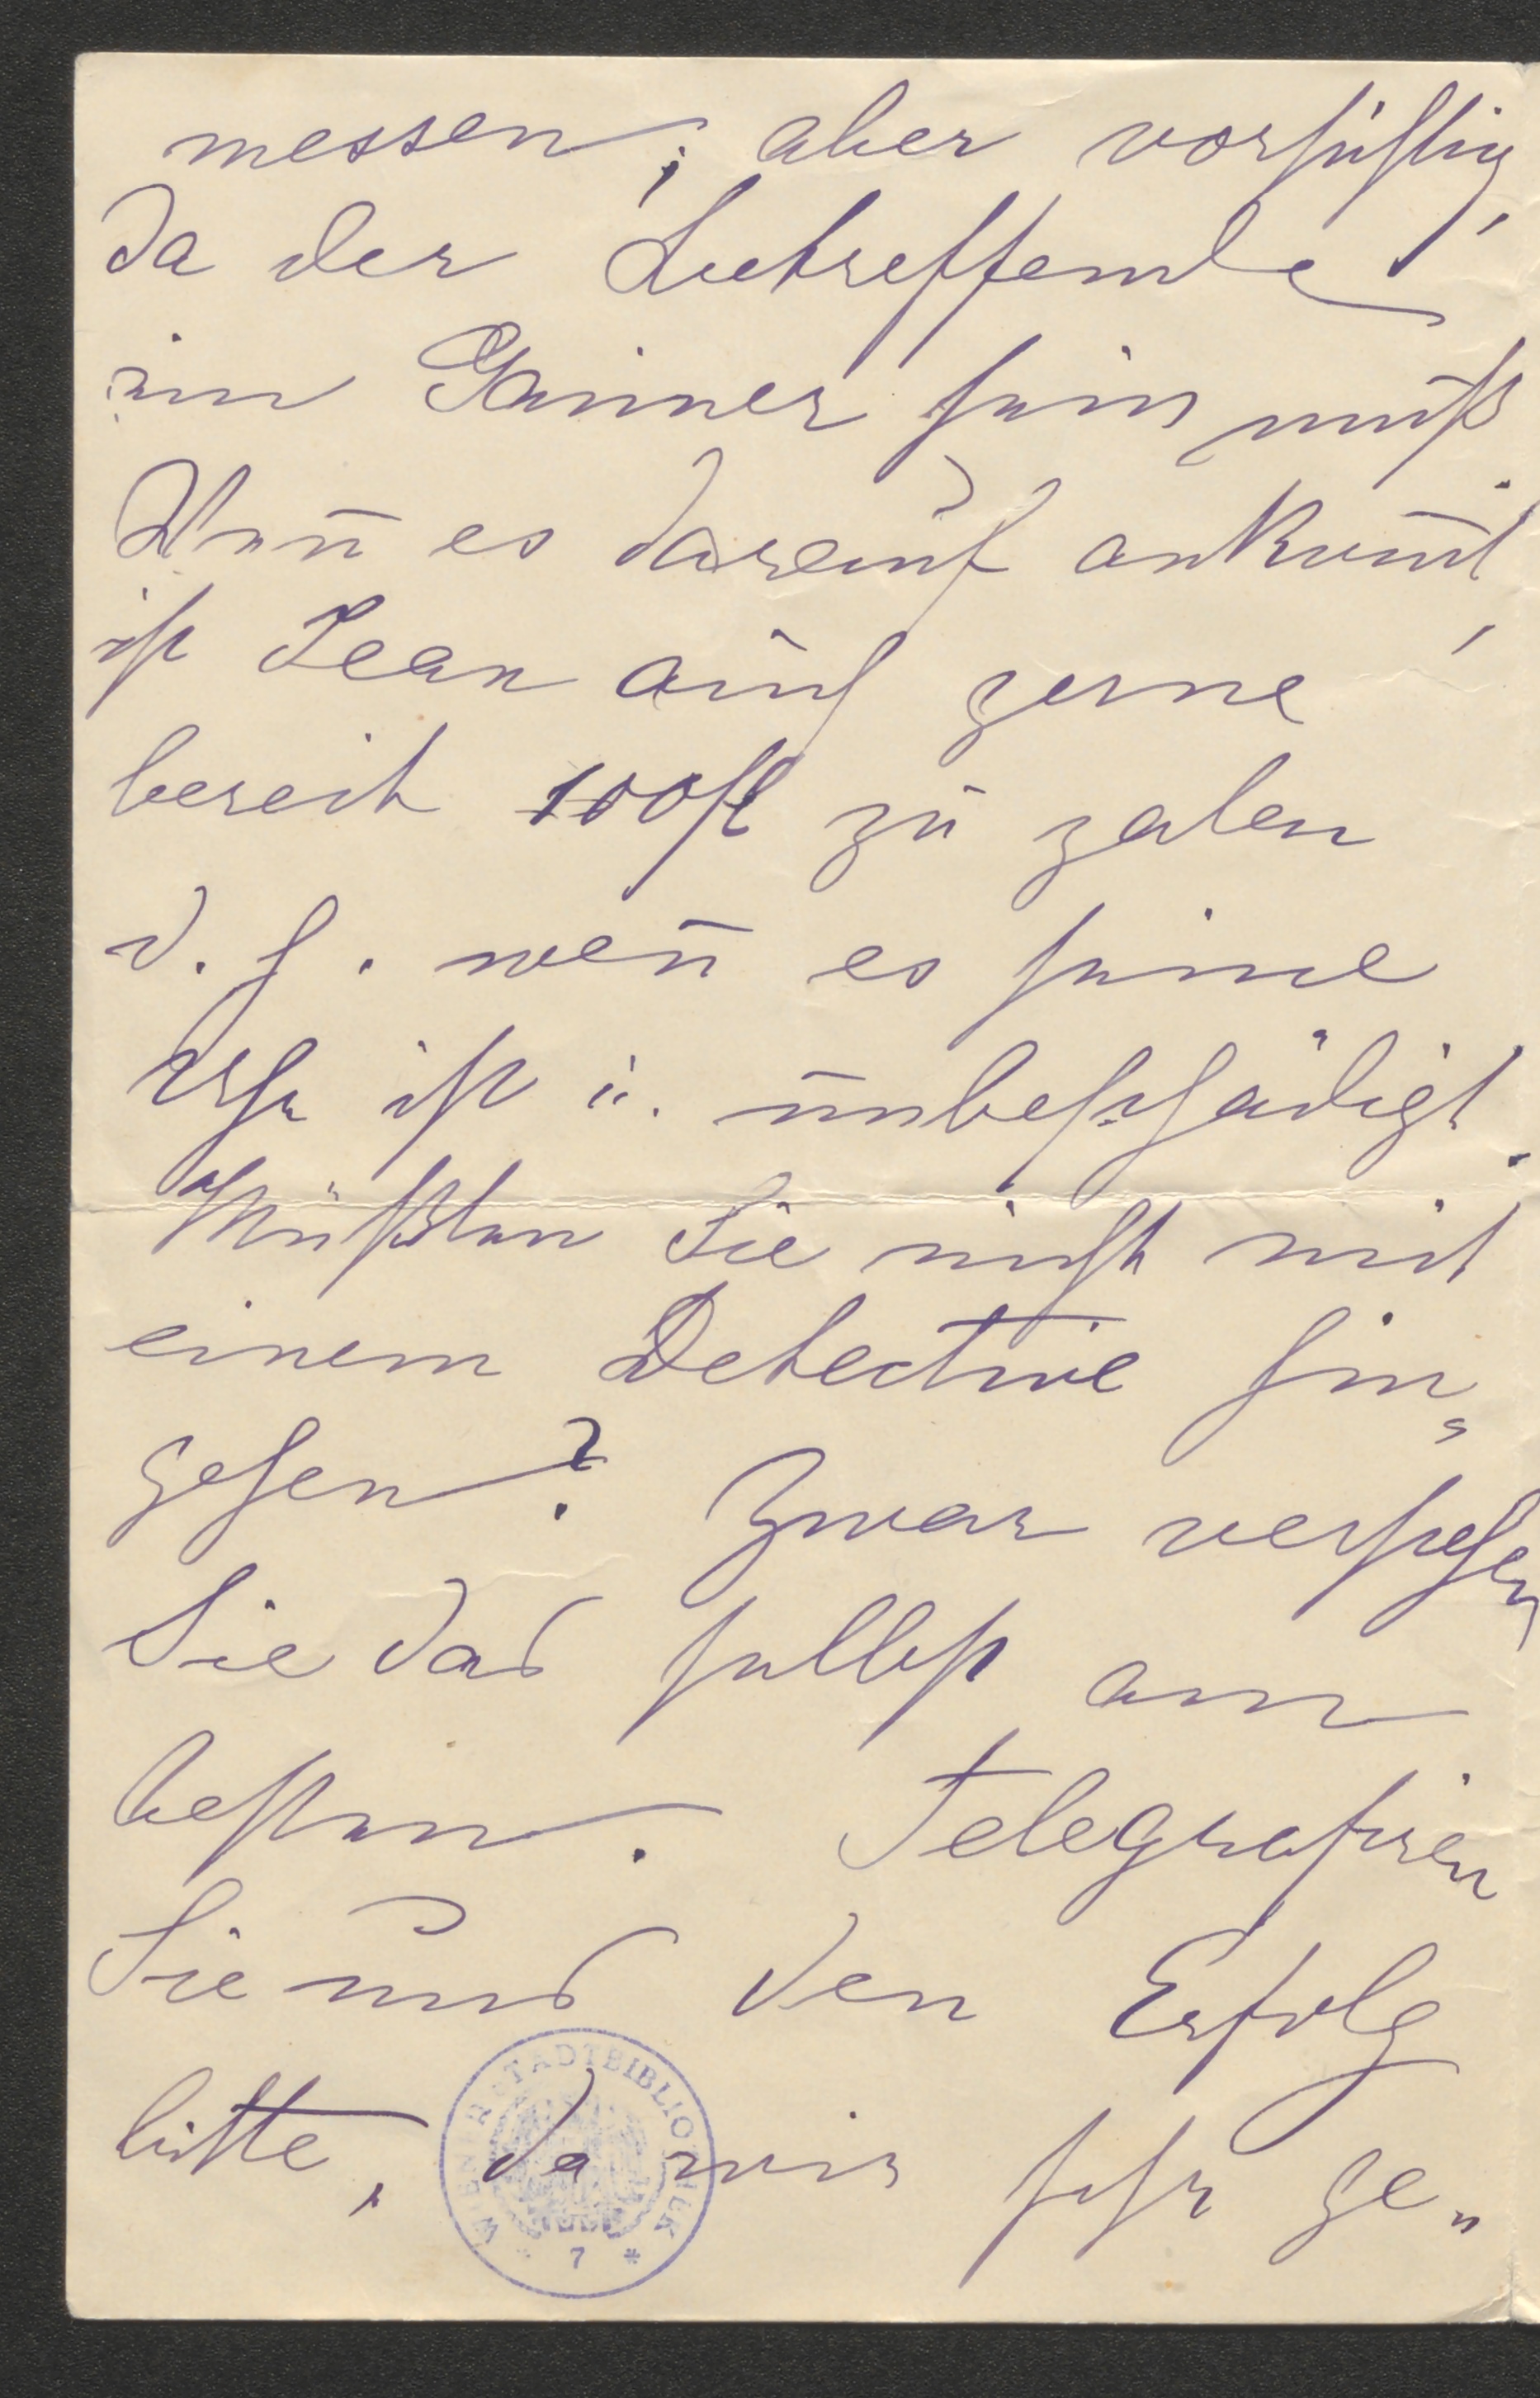 messen; aber vorsichtig,
da der Betreffende
ein Gauner sein muß.
Wen̄ es darauf ankom̄t,
ist Jean auch gerne
bereit 100 fl zu zalen
d. h. wen̄ es seine
Uhr ist u. unbeschädigt.
Müßten Sie nicht mit
einem Detective hin=
gehen? Zwar verstehen
Sie das selbst am
besten. Telegrafiren
Sie uns den Erfolg
bitte, da wir sehr ge=
WIENER STADTBIBLIOTHEK
* 7 *